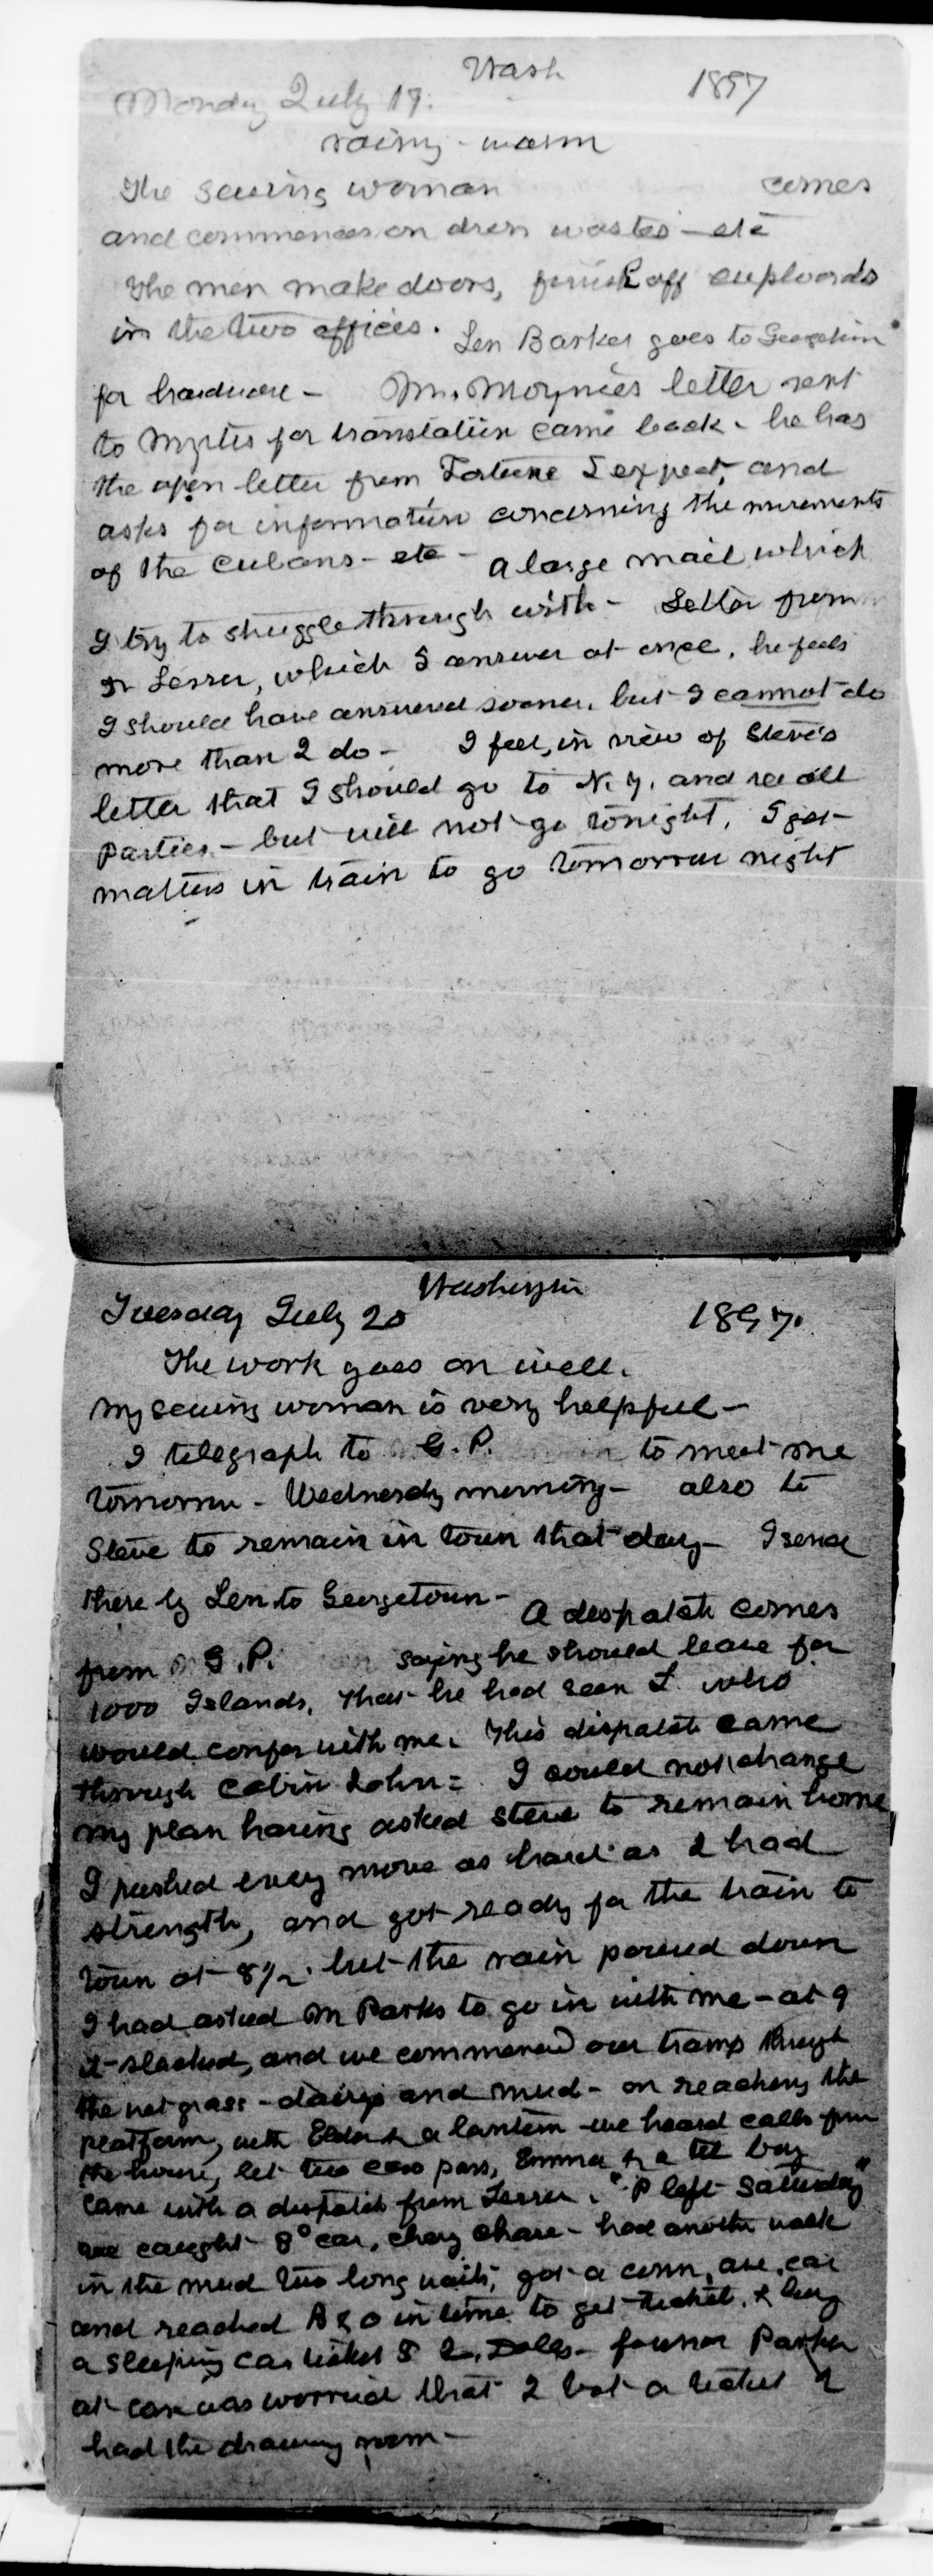 Wash
Monday July 19. 1897
rainy - warm
The sewing woman comes
and commences on dress wastes - etc
The men make doors, finish off cupboards
in the two offices. Len Barker goes to Georgetown
for hardware - Mr. Moynier's letter sent
to Myrtis for translation came back. he has
the open letter from Fortune I expect, and
asks for information concerning the movements
of the Cubans - etc - a large mail which
I try to struggle through with - Letter from
Dr Lesser, which I answer at once, he feels
I should have answered sooner, but I cannot do
more than I do - I feel, in view of Steve's
letter that I should go to N.Y. and see all
parties - but will not go tonight, I get
matters in train to go tomorrow night
Washington
Tuesday July 20 1897.
The work goes on well.
My sewing woman is very helpful -
I telegraph to G.P. to meet me
tomorrow - Wednesday morning - also to
Steve to remain in town that day - I send
these by Len to Georgetown - A despatch comes
from G.P. saying he should leave for
1000 Islands, that he had seen L. who
would confer with me. This dispatch came
through Cabin John = I could not change
my plan having asked Steve to remain home
I pushed every move as hard as I had
strength, and got ready for the train to
town at 8½. but the rain poured down
I had asked Mr Parks to go in with me - at 9
it slacked, and we commenced our tramp through
the wet grass - and mud - on reaching the
platform, with a lantern we heard calls from
the house, let two cars pass, Emma & a tel boy
came with a dispatch from Lesser. "P left Saturday"
we caught car, Chevy Chase - had another walk
in the mud two long waits, got a Conn. ave. car
and reached B & O in time to get ticket, & buy
a sleeping car ticket
at car was worried that I but a ticket
had the drawing room -